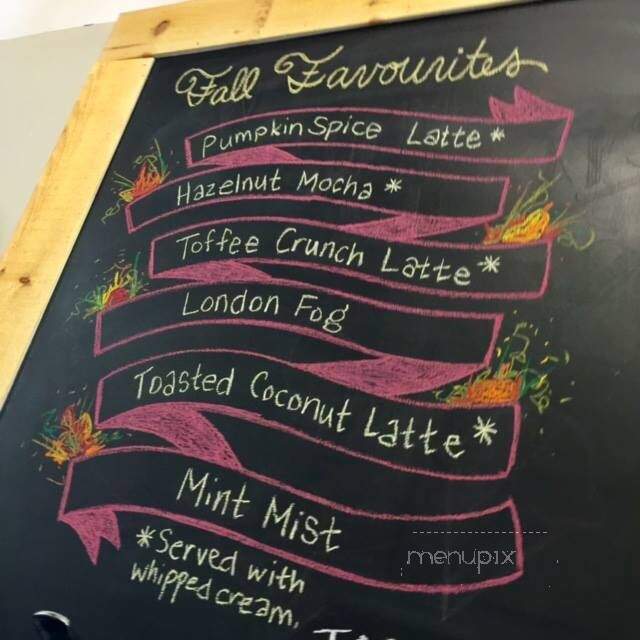 Fall Favourites
Pumpkin Spice Latte*
Hazelnut Mocha*
Toffee Crunch Latte*
London Fog
Toasted Coconut Latte*
Mint Mist
*Served with
whipped cream.
menupix